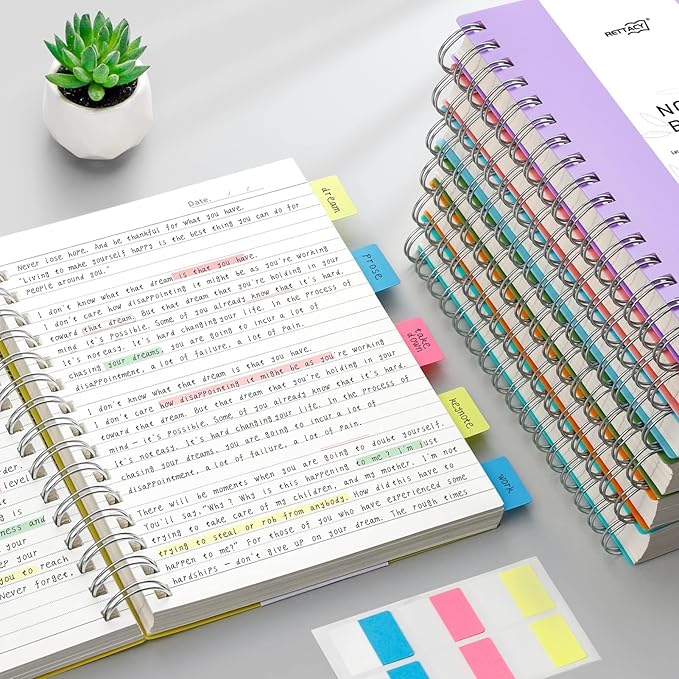 Date. / /
Never lose hope. And be thankful for what you have.
"Living to make yourself happy is the best thing you can do for
people around you."
I don't know what that dream is that you have.
I don't care how disappointing it might be as you're working
toward that dream. But that dream that you're holding in your
mind — it's possible. Some of you already know that it's hard.
It's not easy. It's hard changing your life. In the process of
chasing your dreams, you are going to incur a lot of
disappointment, a lot of failure, a lot of pain.
I don't know what that dream is that you have.
I don't care how disappointing it might be as you're working
toward that dream. But that dream that you're holding in your
mind — it's possible. Some of you already know that it's hard.
It's not easy. It's hard changing your life. In the process of
chasing your dreams, you are going to incur a lot of
disappointment, a lot of failure, a lot of pain.
There will be moments when you are going to doubt yourself.
You'll say, "Why? Why is this happening to me? I'm just
trying to take care of my children, and my mother, I'm not
trying to steal or rob from anybody. How did this have to
happen to me?" For those of you who have experienced some
hardships — don't give up on your dream. The rough times
dream
prose
take
down
keynote
work
level
ness and
ep your
you to reach
Never forget.
RETTACY
NO
B